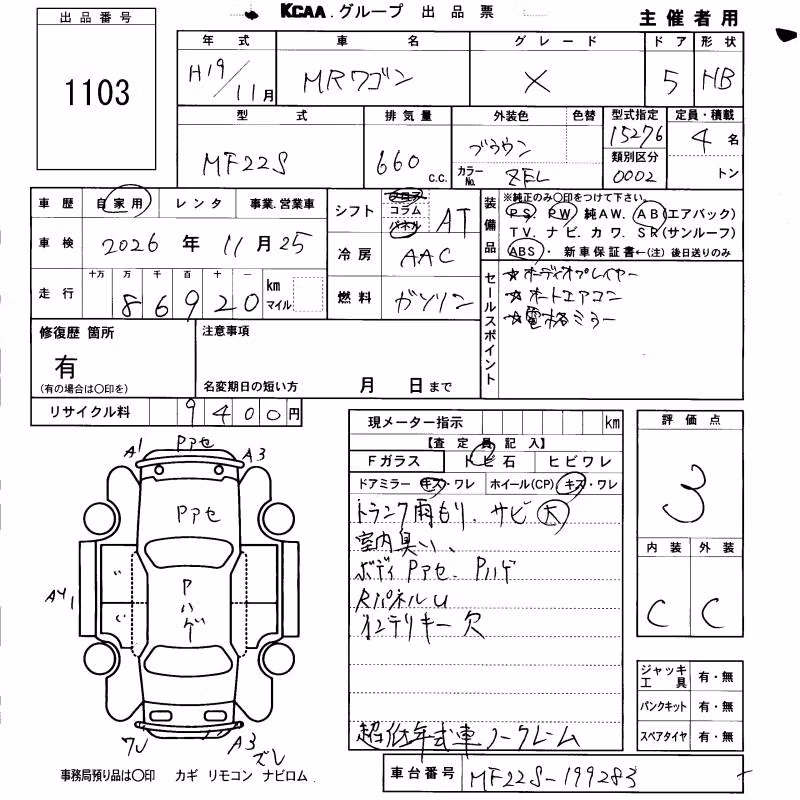 KCAA.グループ 出品票
主催者用
出品番号
1103
年式 車名 グレード ドア 形状
H19/11月 MRワゴン X 5 HB
型式 排気量 外装色 色替 型式指定 定員・積載
MF22S 660 c.c. ブラウン 15276 4 名
カラーNo. ZFL 類別区分 0002 トン
車歴 自家用 レンタ 事業.営業車
車検 2026 年 11 月 25
走行 十万 万 千 百 十 一
86920 km マイル
シフト フロア コラム パネル AT
冷房 AAC
燃料 ガソリン
装備品 ※純正のみ〇印をつけて下さい。
PS PW 純AW. AB(エアバック)
TV. ナビ. カワ. SR(サンルーフ)
ABS・ 新車保証書←(注) 後日送りのみ
セールスポイント
☆オーディオプレイヤー
☆オートエアコン
☆電格ミラー
修復歴 箇所
有
(有の場合は〇印を)
注意事項
名変期日の短い方 月 日まで
リサイクル料 9400円
現メーター指示 km
【査定員記入】
Fガラス トビ石 ヒビワレ
ドアミラー キズ・ワレ ホイール(CP) キズ・ワレ
トランク雨もり. サビ大
室内臭い、
ボディ Pアセ. Pハゲ
Rパネルu
インテリキー欠
超低年式車ノークレーム
評価点
3
内装 外装
C C
ジャッキ工具 有・無
パンクキット 有・無
スペアタイヤ 有・無
A1 Pアセ A3
Pアセ
AY1
Pハゲ
ワレ A3 ズレ
事務局預り品は〇印 カギ リモコン ナビロム.
車台番号 MF22S-199283